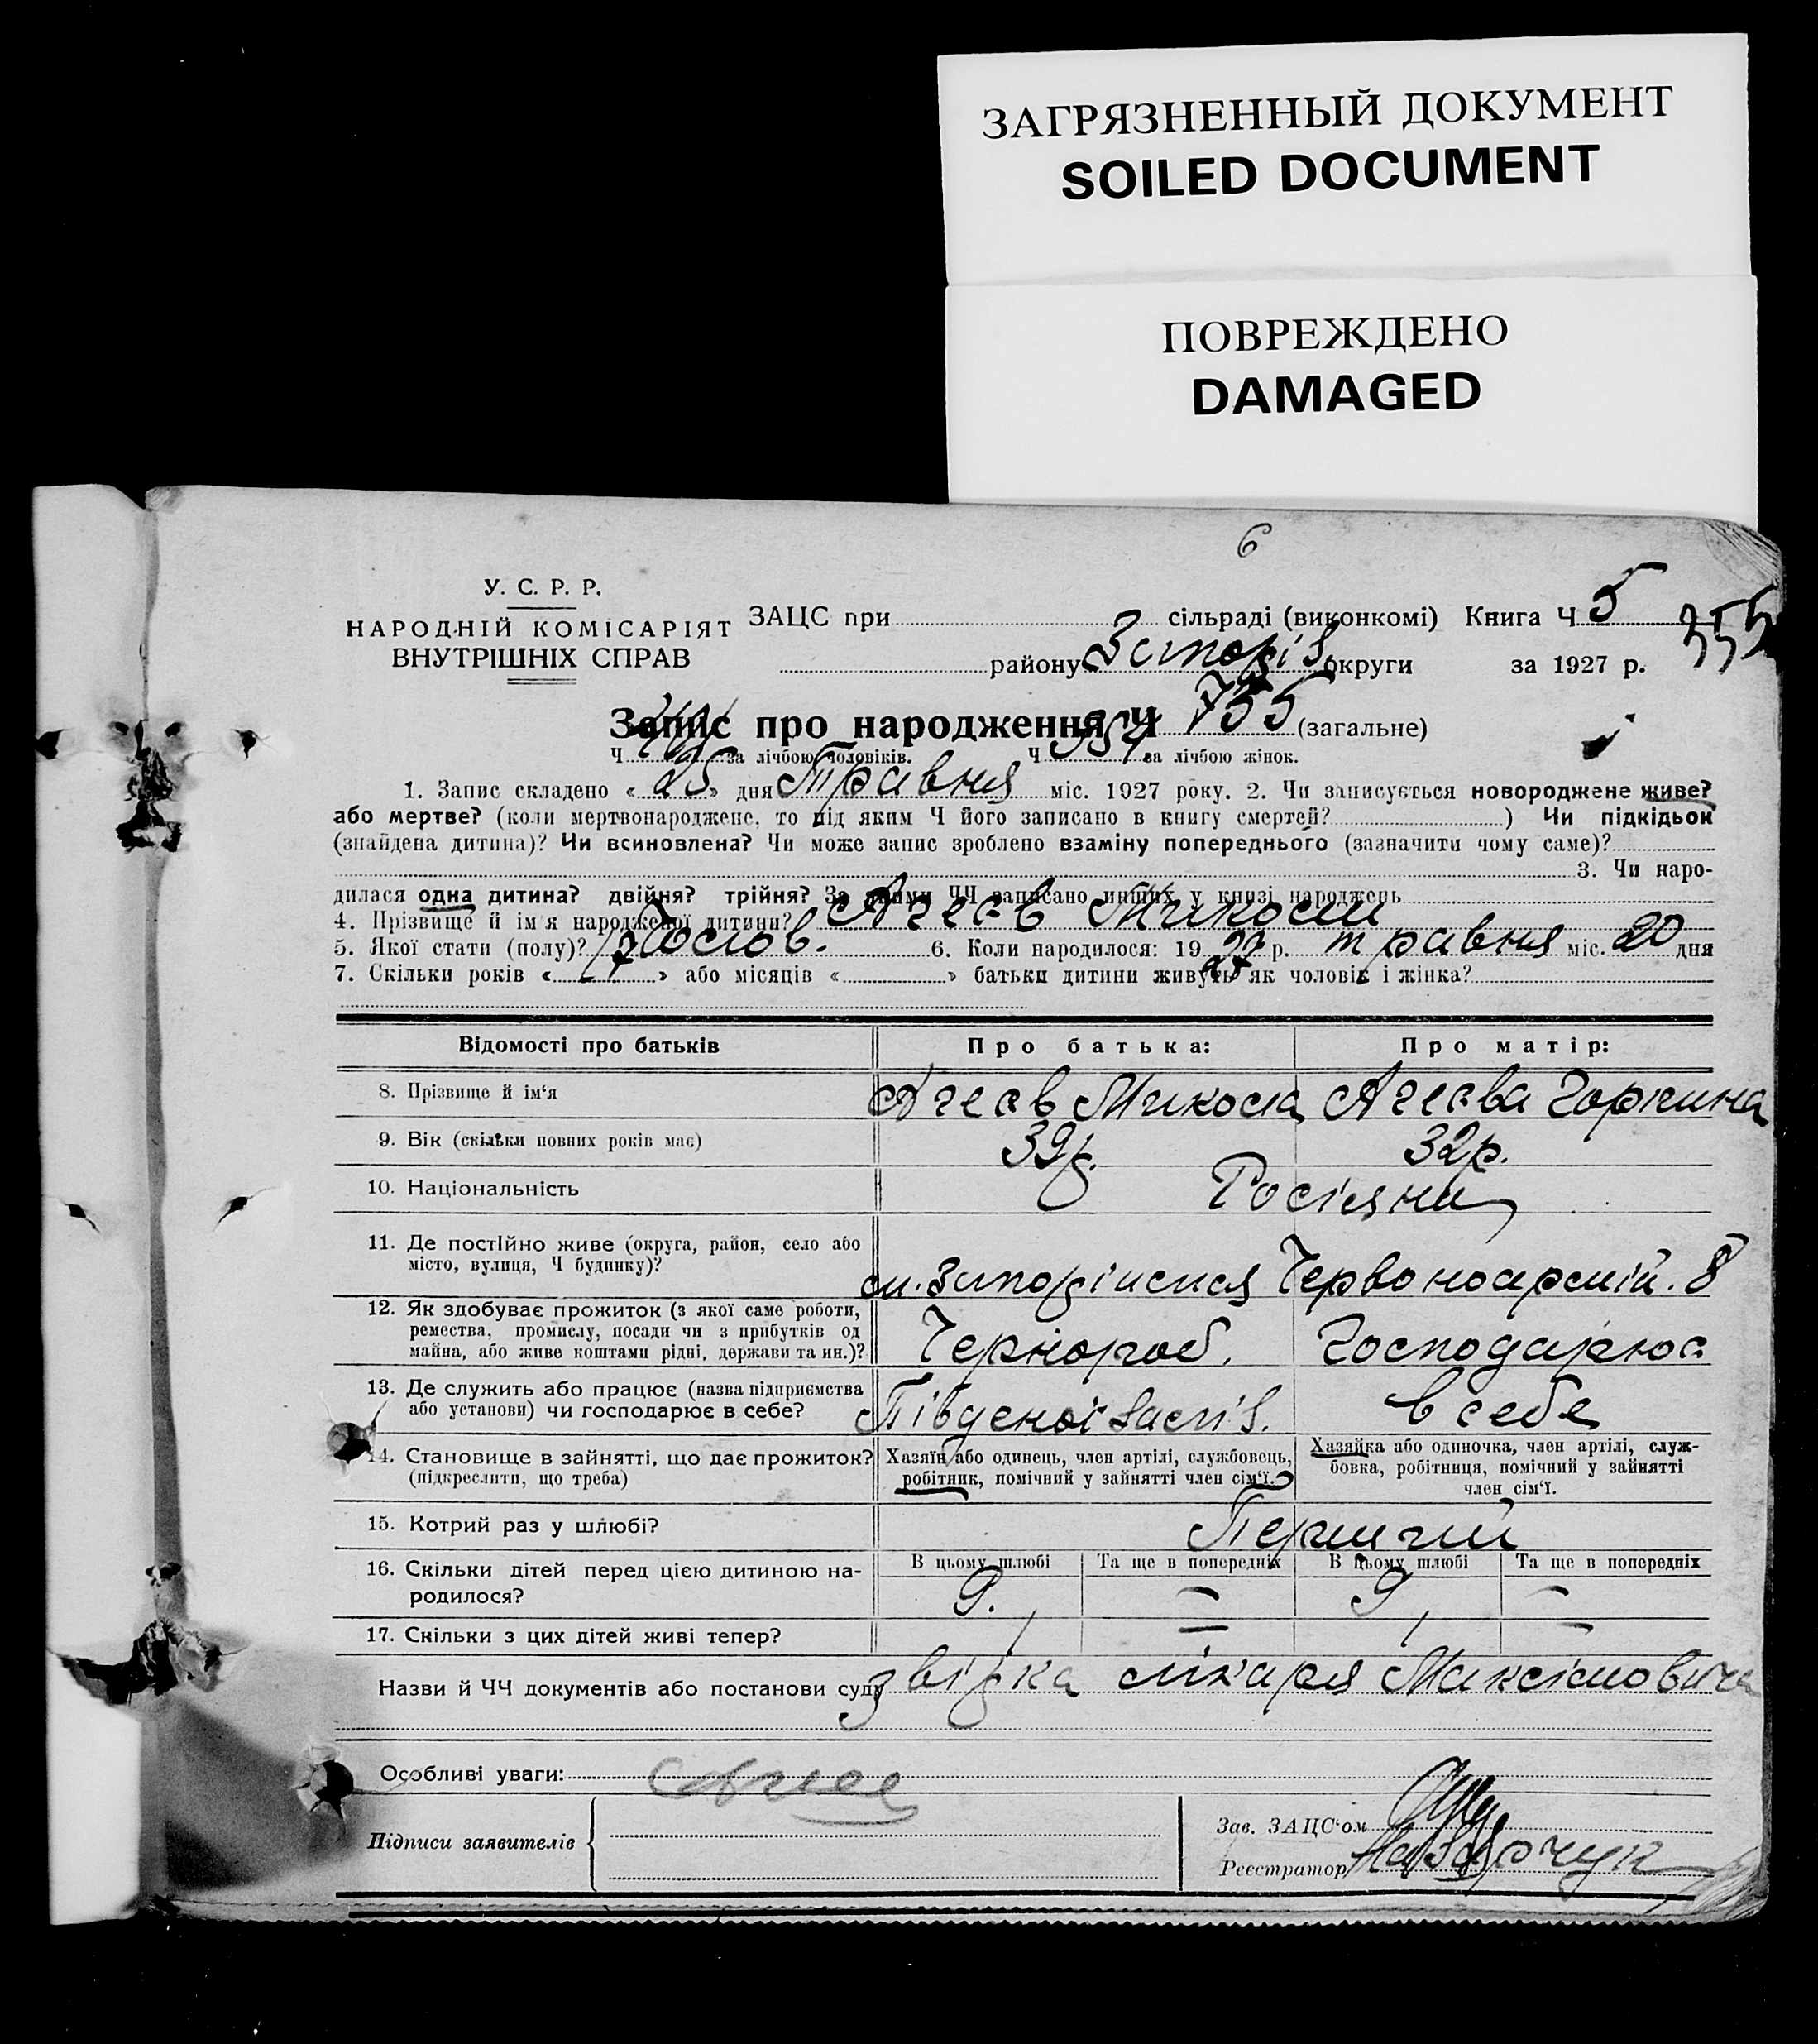 ЗАГРЯЗНЕННЫЙ ДОКУМЕНТ
SOILED DOCUMENT
ПОВРЕЖДЕНО
DAMAGED
6
У. С. Р. Р.
НАРОДНІЙ КОМІСАРІЯТ
ВНУТРІШНІХ СПРАВ
ЗАЦС при сільраді (виконкомі) Книга Ч 5
району Запоріз. округи за 1927 р.
355
Запис про народження Ч 755 (загальне)
Ч за лічбою чоловіків. Ч за лічбою жінок.
1. Запис складено « 25 » дня Травня міс. 1927 року. 2. Чи записується новороджене живе?
або мертве? (коли мертвонароджене, то під яким Ч його записано в книгу смертей? ) Чи підкідьок
(знайдена дитина)? Чи всиновлена? Чи може запис зроблено взаміну попереднього (зазначити чому саме)?
3. Чи наро-
дилася одна дитина? двійня? трійня? За якими ЧЧ записано инших у книзі народжень
4. Прізвище й ім'я народженої дитини? Агеєв Микола
5. Якої стати (полу)? Чолов. 6. Коли народилося: 19 27 р. травня міс. 20 дня
7. Скільки років « » або місяців « » батьки дитини живуть як чоловік і жінка?
Відомості про батьків
Про батька:
Про матір:
8. Прізвище й ім'я
Агеєв Микола
Агеєва Горпина
9. Вік (скільки повних років має)
39р.
32р.
10. Національність
Росіяни
11. Де постійно живе (округа, район, село або
місто, вулиця, Ч будинку)?
м. Запоріжжя Червоноармій. 8
12. Як здобуває прожиток (з якої саме роботи,
ремества, промислу, посади чи з прибутків од
майна, або живе коштами рідні, держави та ин.)?
Чернороб.
Господарює
13. Де служить або працює (назва підприємства
або установи) чи господарює в себе?
Південої
в себе
14. Становище в зайнятті, що дає прожиток?
(підкреслити, що треба)
Хазяїн або одинець, член артілі, службовець,
робітник, помічний у зайнятті член сім'ї.
Хазяйка або одиночка, член артілі, служ-
бовка, робітниця, помічний у зайнятті
член сім'ї.
15. Котрий раз у шлюбі?
Перший
16. Скільки дітей перед цією дитиною на-
родилося?
В цьому шлюбі
Та ще в попередніх
В цьому шлюбі
Та ще в попередніх
9. — 9 —
17. Скільки з цих дітей живі тепер?
Назви й ЧЧ документів або постанови суду звідка лікаря Максімовича
Особливі уваги:
Підписи заявителів
Зав. ЗАЦС'ом
Реєстратор Назарчук